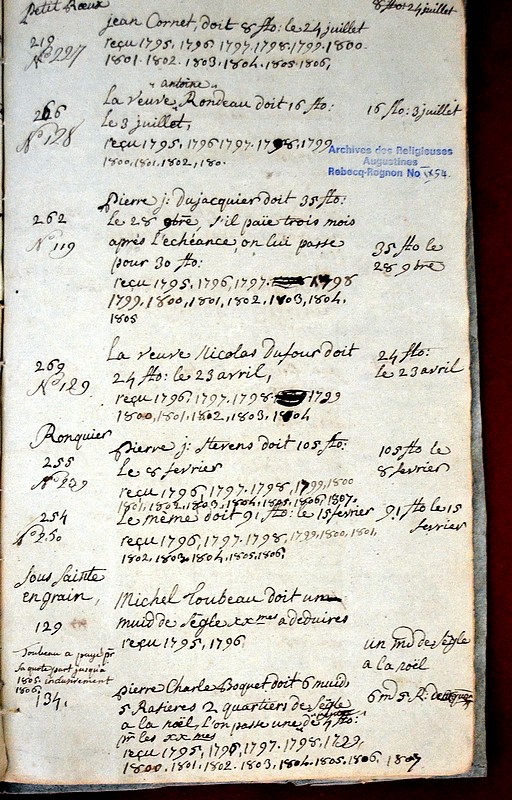 Petit Rœux
jean Cornet, doit 8 flo: le 24 juillet
8 flo: 24 juillet
219
N° 227
reçu 1795, 1796, 1797. 1798. 1799. 1800.
1801. 1802. 1803. 1804. 1805. 1806,
antoine
266
N° 128
La veuve Rondeau doit 16 flo:
16 flo: 3 juillet
le 3 juillet,
reçu 1795, 1796 1797. 1798, 1799
1800, 1801, 1802, 180.
Archives des Religieuses
Augustines
Rebecq-Rognon No 54.
262
N° 119
Pierre j: Dujacquier doit 35 flo:
le 28 9bre, s'il paie trois mois
après l'echéance, on lui passe
pour 30 flo:
35 flo le
28 9bre
reçu 1795, 1796, 1797. 1798
1799. 1800, 1801, 1802. 1803, 1804.
1805
269
N° 129
La veuve Nicolas Dufour doit
24 flo: le 23 avril,
24 flo:
le 23 avril
reçu 1796, 1797. 1798 1799
1800, 1801, 1802, 1803, 1804
Ronquier
255
N° 239
Pierre j: Sterens doit 105 flo:
le 8 fevrier
105 flo le
8 fevrier
reçu 1796, 1797. 1798, 1799, 1800
1801, 1802, 1803, 1804, 1805, 1806, 1807.
254
N° 250
Le même doit 91 flo: le 15 fevrier
91 flo le 15
fevrier
reçu 1796, 1797. 1798, 1799, 1800, 1801,
1802, 1803, 1804, 1805, 1806,
Sous Sainte
en grain,
129
Michel Loubeau doit un
muid de segle xxmes a deduires
reçu 1795, 1796
un md de segle
a la noël
Loubeau a payé pr
sa quote part jusqu'a
1805 inclusivement
1806,
134.
Pierre Charle Boquet doit 6 muid
5 Rasieres 2 quartiers de segle
a la noël, l'on passe une de 4 flo:
pr les xxmes
6 m 5 R: de
reçu 1795, 1796, 1797. 1798. 1799,
1800. 1801. 1802. 1803, 1804. 1805. 1806, 1807